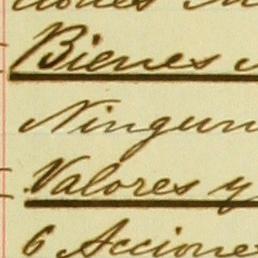 Bienes
Ningun
Valores y
6 Accione